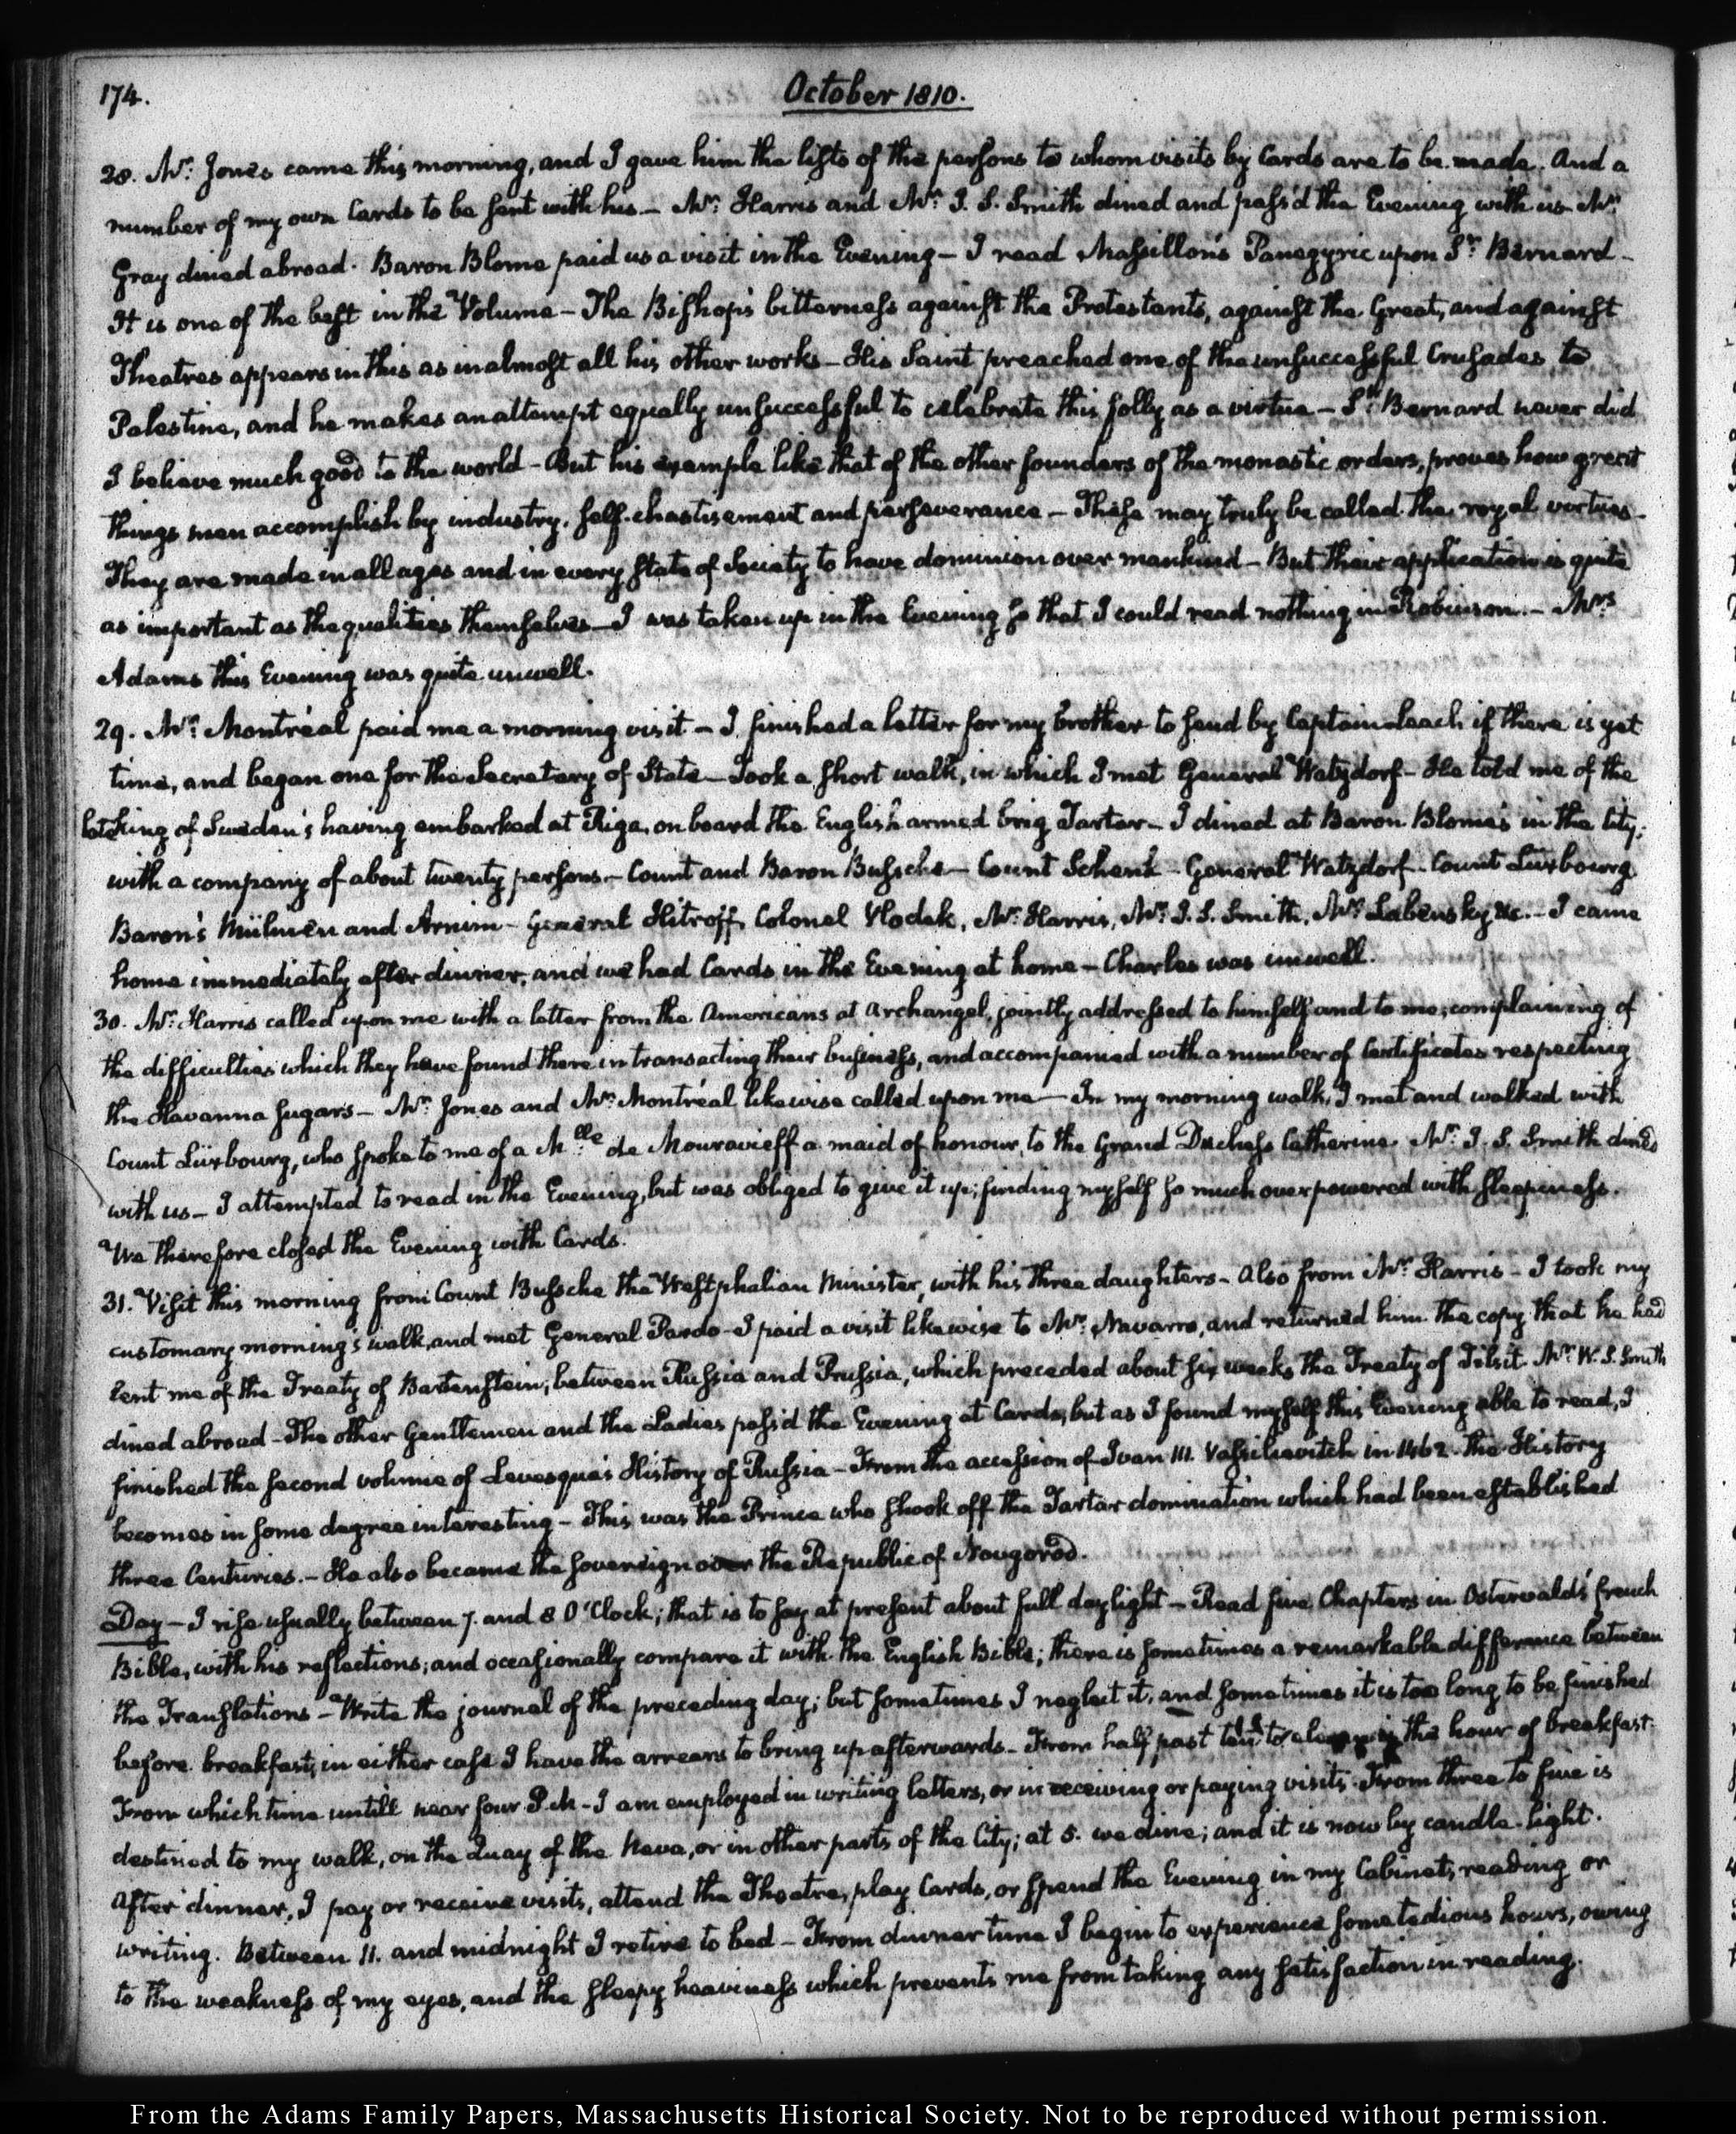 174.
October 1810.
28. Mr: Jones came this morning, and I gave him the lists of the persons to whom visits by Cards are to be made. And a
number of my own Cards to be sent with his — Mr: Harris and Mr: J. S. Smith dined and pass'd the Evening with us Mr:
Gray dined abroad. Baron Blome paid us a visit in the Evening — I read Massillon's Panegyric upon St: Bernard —
It is one of the best in the Volume — The Bishop's bitterness against the Protestants, against the Great, and against
Theatres appears in this as in almost all his other works — His Saint preached one of the unsuccessful Crusades to
Palestine, and he makes an attempt equally unsuccessful to celebrate this folly as a virtue — St: Bernard never did
I believe much good to the world — But his example like that of the other founders of the monastic orders, proves how great
things men accomplish by industry, self-chastisement and perseverance — These may truly be called the royal virtues —
They are made in all ages and in every State of Society to have dominion over mankind — But their application is quite
as important as the qualities themselves — I was taken up in the Evening so that I could read nothing in Robinson. — Mrs
Adams this Evening was quite unwell.
29. Mr: Montréal paid me a morning visit — I finished a letter for my brother to send by Captain Leach if there is yet
time, and began one for the Secretary of State — Took a short walk, in which I met General Watzdorf — He told me of the
late King of Sweden's having embarked at Riga, on board the English armed brig Tartar — I dined at Baron Blome's in the City;
with a company of about twenty persons — Count and Baron Bussche — Count Schenk — General Watzdorf — Count Luxbourg
Baron's Mülinen and Arnim — General Hitroff, Colonel Vlodek, Mr: Harris, Mr: J. S. Smith, Mr: Labensky &c. — I came
home immediately after dinner, and we had Cards in the Evening at home — Charles was unwell.
30. Mr: Harris called upon me with a letter from the Americans at Archangel, jointly addressed to himself and to me; complaining of
the difficulties which they have found there in transacting their business, and accompanied with a number of Certificates respecting
the Havanna Sugars — Mr: Jones and Mr: Montréal likewise called upon me — In my morning walk, I met and walked with
Count Luxbourg, who spoke to me of a Mlle: de Mouravieff a maid of honour to the Grand Duchess Catherine. Mr: J. S. Smith dined
with us — I attempted to read in the Evening, but was obliged to give it up; finding myself so much overpowered with sleepiness.
We therefore closed the Evening with Cards.
31. Visit this morning from Count Bussche the Westphalian Minister, with his three daughters — Also from Mr: Harris — I took my
customary morning's walk, and met General Pardo — I paid a visit likewise to Mr: Navarro, and returned him the copy that he had
lent me of the Treaty of Bartenstein, between Russia and Prussia, which preceded about six weeks the Treaty of Tilsit. Mr: W. S. Smith
dined abroad — The other Gentlemen and the Ladies pass'd the Evening at Cards, but as I found myself this Evening able to read, I
finished the second volume of Levesque's History of Russia — From the accession of Ivan III. Vassilievitch in 1462. the History
becomes in some degree interesting — This was the Prince who shook off the Tartar domination which had been established
three Centuries. — He also became the sovereign over the Republic of Novgorod.
Day — I rise usually between 7. and 8 O'Clock; that is to say at present about full daylight — Read five Chapters in Osterwald's french
Bible, with his reflections; and occasionally compare it with the English Bible; there is sometimes a remarkable difference between
the Translations — Write the journal of the preceding day; but sometimes I neglect it, and sometimes it is too long to be finished
before breakfast; in either case I have the arrears to bring up afterwards — From half past ten to the hour of breakfast.
From which time untill near four P.M. — I am employed in writing letters, or in receiving or paying visits. From three to five is
destined to my walk, on the Quay of the Neva, or in other parts of the City; at 5. we dine; and it is now by candle-light.
After dinner, I pay or receive visits, attend the Theatre, play Cards, or spend the Evening in my Cabinet, reading or
writing. Between 11. and midnight I retire to bed — From dinner time I begin to experience some tedious hours, owing
to the weakness of my eyes, and the sleepy heaviness which prevents me from taking any satisfaction in reading.
From the Adams Family Papers, Massachusetts Historical Society. Not to be reproduced without permission.